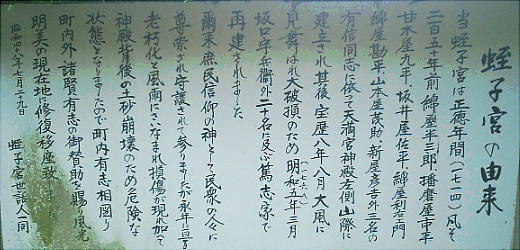 蛭子宮の由来
当蛭子宮は正徳年間(一七一四)凡そ
二百五十年前綿屋半三郎、播磨屋士中平
甘木屋九平、坂井屋佐平、綿屋利右エ門
綿屋勘平、山本屋茂助、新屋彦士外三名の
有信同志に依って天満宮神殿左側山際に
建立され其後宝歴八年八月大風に
見舞はれ大破損のため明和五年三月
(一七六八)
坂口半兵衛外二十名に及ぶ篤志家で
再建されました
爾来庶民信仰の神として民衆の人々に
尊崇され守護されて参りましたが永年に亘る
老朽化と風雨にさいなまれ損傷が現れ加えて
神殿背後の土砂崩壊のため危険な
状態となりましたので町内有志相図り
町内外諸賢有志の御賛助を賜り風光
明美の現在地に修復移座致しました
昭和四八年七月二十九日
蛭子宮世話人一同